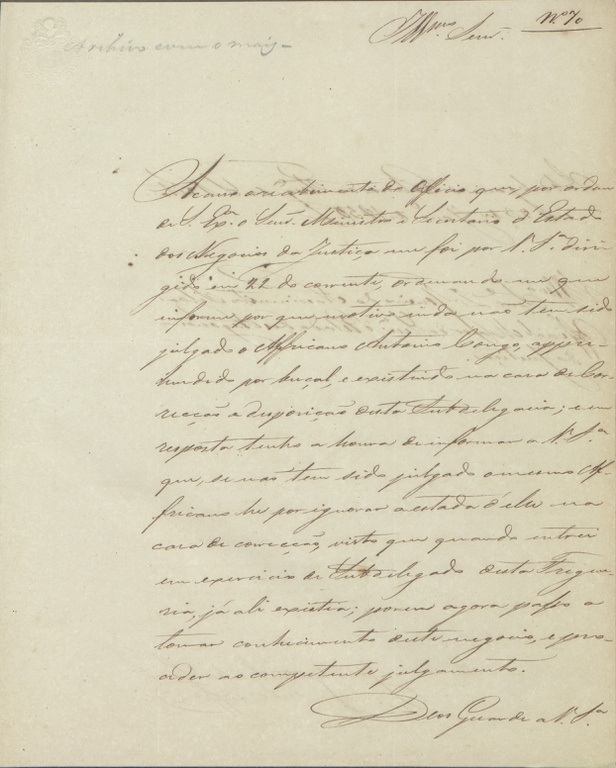 Nº 70
Illmo. Senr.
Archive com o mais
Accuso o recebimento do Officio que, por ordem
de S. Exª. o Senr. Ministro e Secretario d'Estado
dos Negocios da Justiça me foi por V. Sª. diri-
gido em 22 do corrente, ordenando-me que
informe por que motivo inda não tem sido
julgado o Affricano Antonio Congo, appre-
hendido por buçal, e existindo na casa de Cor-
recção a disposição desta Subdelegacia; e em
resposta tenho a honra de informar a V. Sª.
que, se não tem sido julgado o mesmo Af-
fricano he por ignorar a estada d'elle na
casa de correcção, visto que quando entrei
em exercicio de Subdelegado desta Fregue-
zia, já ali existia; porem agora passo a
tomar conhecimento deste negocio, e pro-
ceder ao competente julgamento.
Deos Guarde a V. Sª.